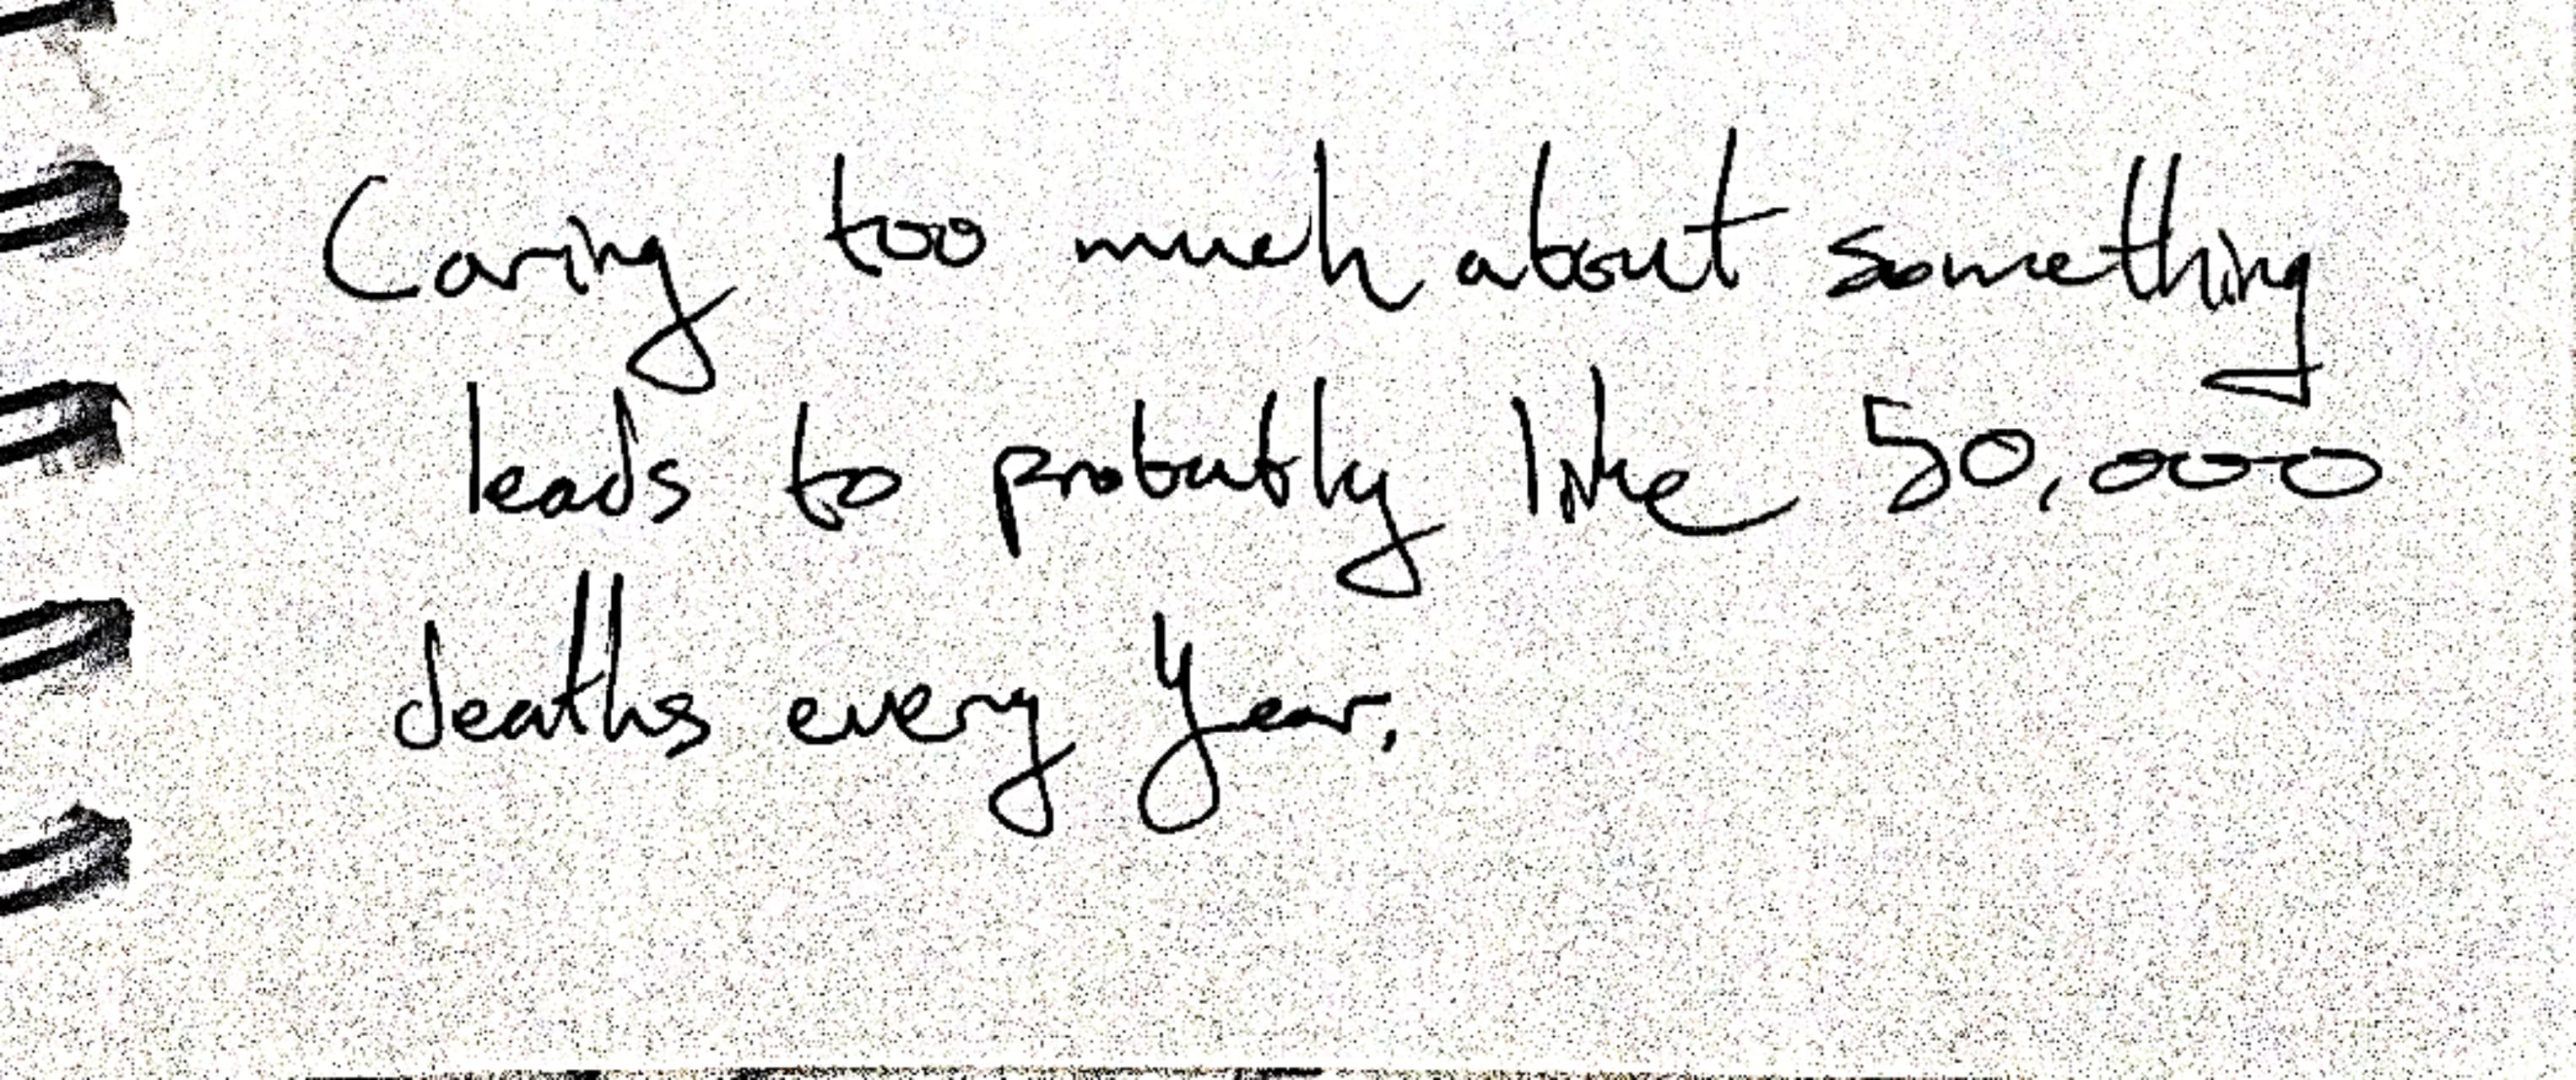 Caring too much about something
leads to probably like 50,000
deaths every year.